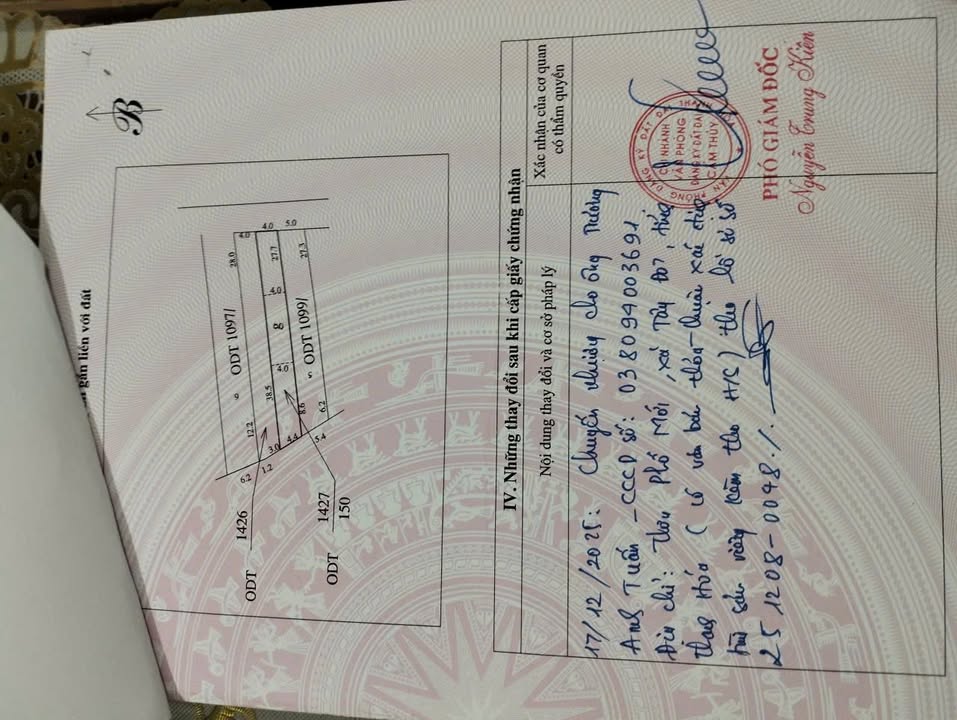 gắn liền với đất
B
6.2
12.2
ODT 1097/
28.0
4.0
1.2
3.0
38.5
4.0
8
4.0
27.7
4.0
4.4
8.6
ODT 1099/
5.0
5.4
6.2
27.3
ODT
1426
ODT
1427
150
IV. Những thay đổi sau khi cấp giấy chứng nhận
Nội dung thay đổi và cơ sở pháp lý
Xác nhận của cơ quan
có thẩm quyền
17/12/2025: Chuyển nhượng cho ông Trương
Anh Tuấn - CCCD số: 038094003691
Địa chỉ: thôn Phố Mới, xã Tây Đô, tỉnh
Thanh Hóa (có văn bản thỏa thuận xác định
tài sản riêng kèm theo H/S) theo hồ sơ số
251208-0048./.
VĂN PHÒNG ĐĂNG KÝ ĐẤT ĐAI THANH
CHI NHÁNH
VĂN PHÒNG
ĐĂNG KÝ ĐẤT ĐAI
CẨM THỦY
PHÓ GIÁM ĐỐC
Nguyễn Trung Kiên